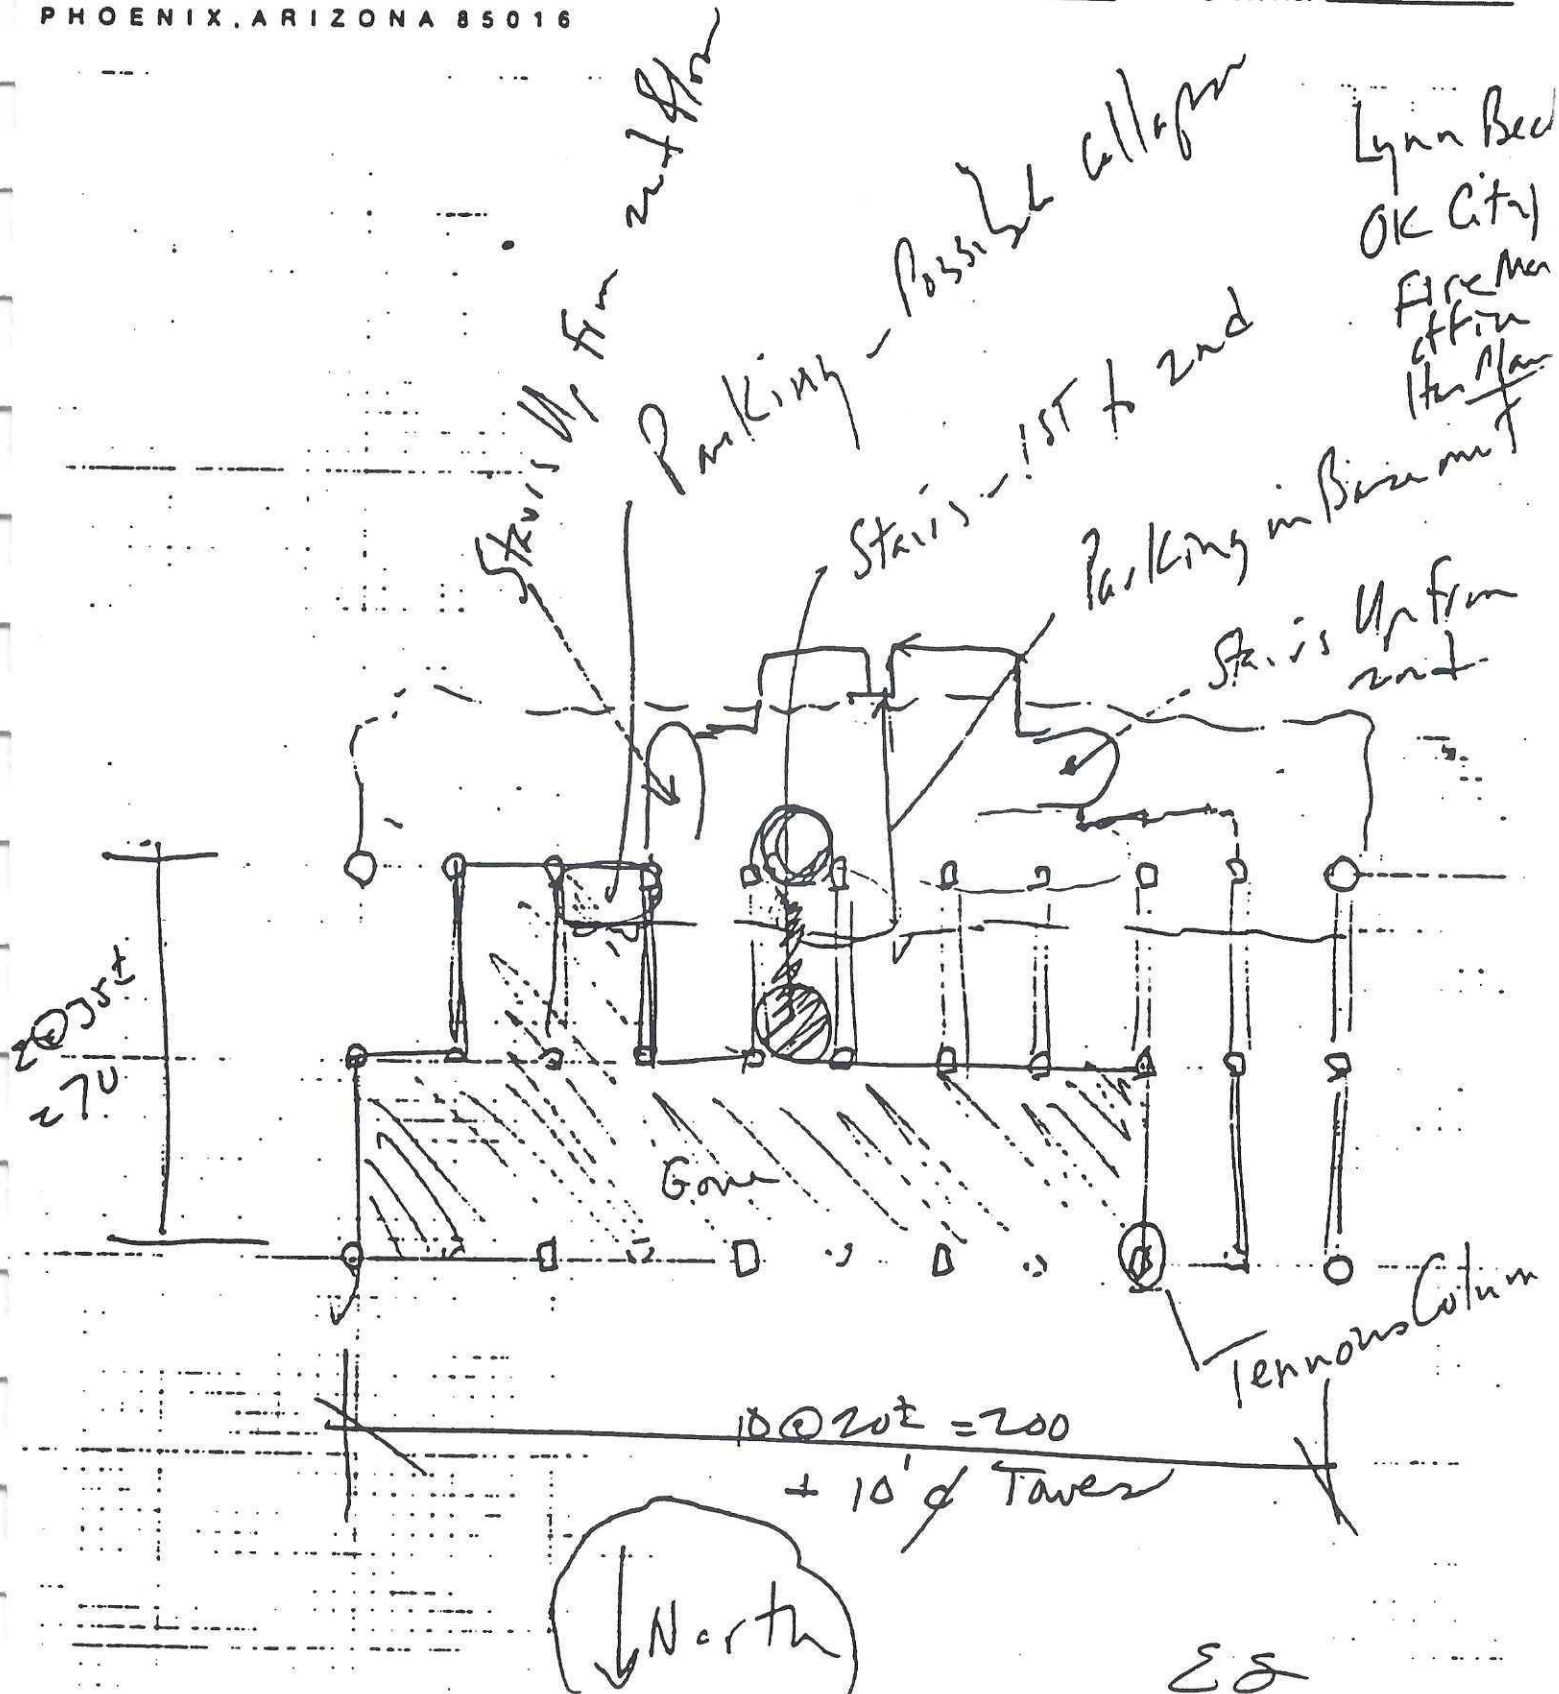 PHOENIX, ARIZONA 85016
Stairs Up frm 2nd flor
Parking - Possible Collapse
Stairs - 1ST to 2nd
Parking in Basement
Stairs Up frm
2nd
Lynn
OK City
Fire
2@35±
70
Gone
Column
10@20± = 200
+ 10' Tower
North